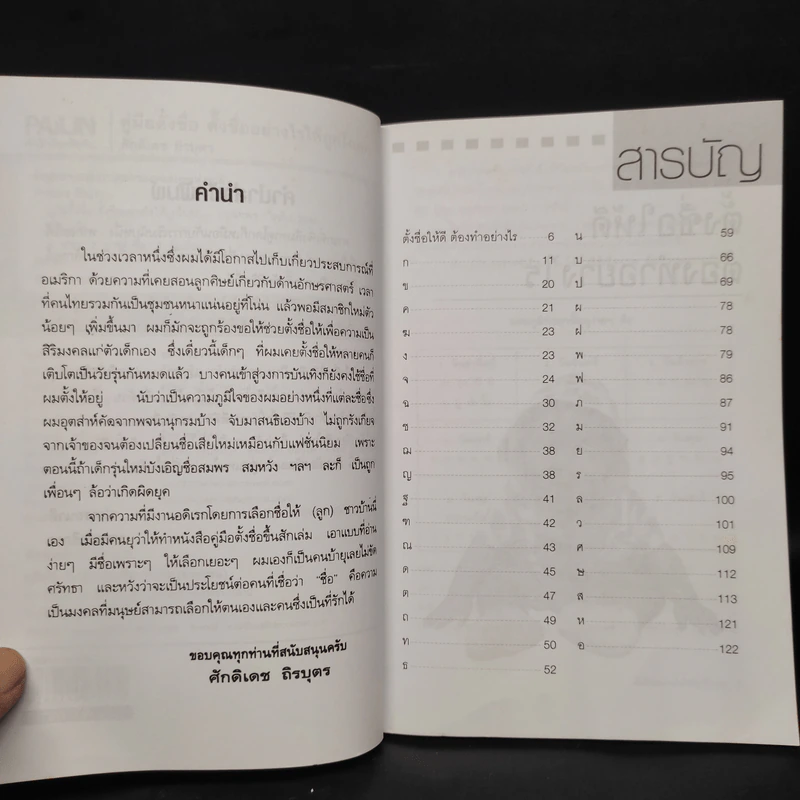 คำนำ
ในช่วงเวลาหนึ่งซึ่งผมได้มีโอกาสไปเก็บเกี่ยวประสบการณ์ที่
อเมริกา ด้วยความที่เคยสอนลูกศิษย์เกี่ยวกับด้านอักษรศาสตร์ เวลา
ที่คนไทยรวมกันเป็นชุมชนหนาแน่นอยู่ที่โน่น แล้วพอมีสมาชิกใหม่ตัว
น้อยๆ เพิ่มขึ้นมา ผมก็มักจะถูกร้องขอให้ช่วยตั้งชื่อให้เพื่อความเป็น
สิริมงคลแก่ตัวเด็กเอง ซึ่งเดี๋ยวนี้เด็กๆ ที่ผมเคยตั้งชื่อให้หลายคนก็
เติบโตเป็นวัยรุ่นกันหมดแล้ว บางคนเข้าสู่วงการบันเทิงก็ยังคงใช้ชื่อที่
ผมตั้งให้อยู่ นับว่าเป็นความภูมิใจของผมอย่างหนึ่งที่แต่ละชื่อซึ่ง
ผมอุตส่าห์คัดจากพจนานุกรมบ้าง จับมาสนธิเองบ้าง ไม่ถูกรังเกียจ
จากเจ้าของจนต้องเปลี่ยนชื่อเสียใหม่เหมือนกับแฟชั่นนิยม เพราะ
ตอนนี้ถ้าเด็กรุ่นใหม่บังเอิญชื่อสมพร สมหวัง ฯลฯ ละก็ เป็นถูก
เพื่อนๆ ล้อว่าเกิดผิดยุค
จากความที่มีงานอดิเรกโดยการเลือกชื่อให้ (ลูก) ชาวบ้านนี่
เอง เมื่อมีคนยุว่าให้ทำหนังสือคู่มือตั้งชื่อขึ้นสักเล่ม เอาแบบที่อ่าน
ง่ายๆ มีชื่อเพราะๆ ให้เลือกเยอะๆ ผมเองก็เป็นคนบ้ายุเลยไม่ขัด
ศรัทธา และหวังว่าจะเป็นประโยชน์ต่อคนที่เชื่อว่า "ชื่อ" คือความ
เป็นมงคลที่มนุษย์สามารถเลือกให้ตนเองและคนซึ่งเป็นที่รักได้
ขอบคุณทุกท่านที่สนับสนุนครับ
ศักดิเดช ถิรบุตร
สารบัญ
ตั้งชื่อให้ดี ต้องทำอย่างไร 6
ก 11
ข 20
ค 21
ฆ 23
ง 23
จ 24
ฉ 30
ช 32
ฌ 38
ญ 38
ฐ 41
ฑ 42
ณ 43
ด 45
ต 47
ถ 49
ท 50
ธ 52
น 59
บ 66
ป 69
ผ 78
ฝ 78
พ 79
ฟ 86
ภ 87
ม 91
ย 94
ร 95
ล 100
ว 101
ศ 109
ษ 112
ส 113
ห 121
อ 122